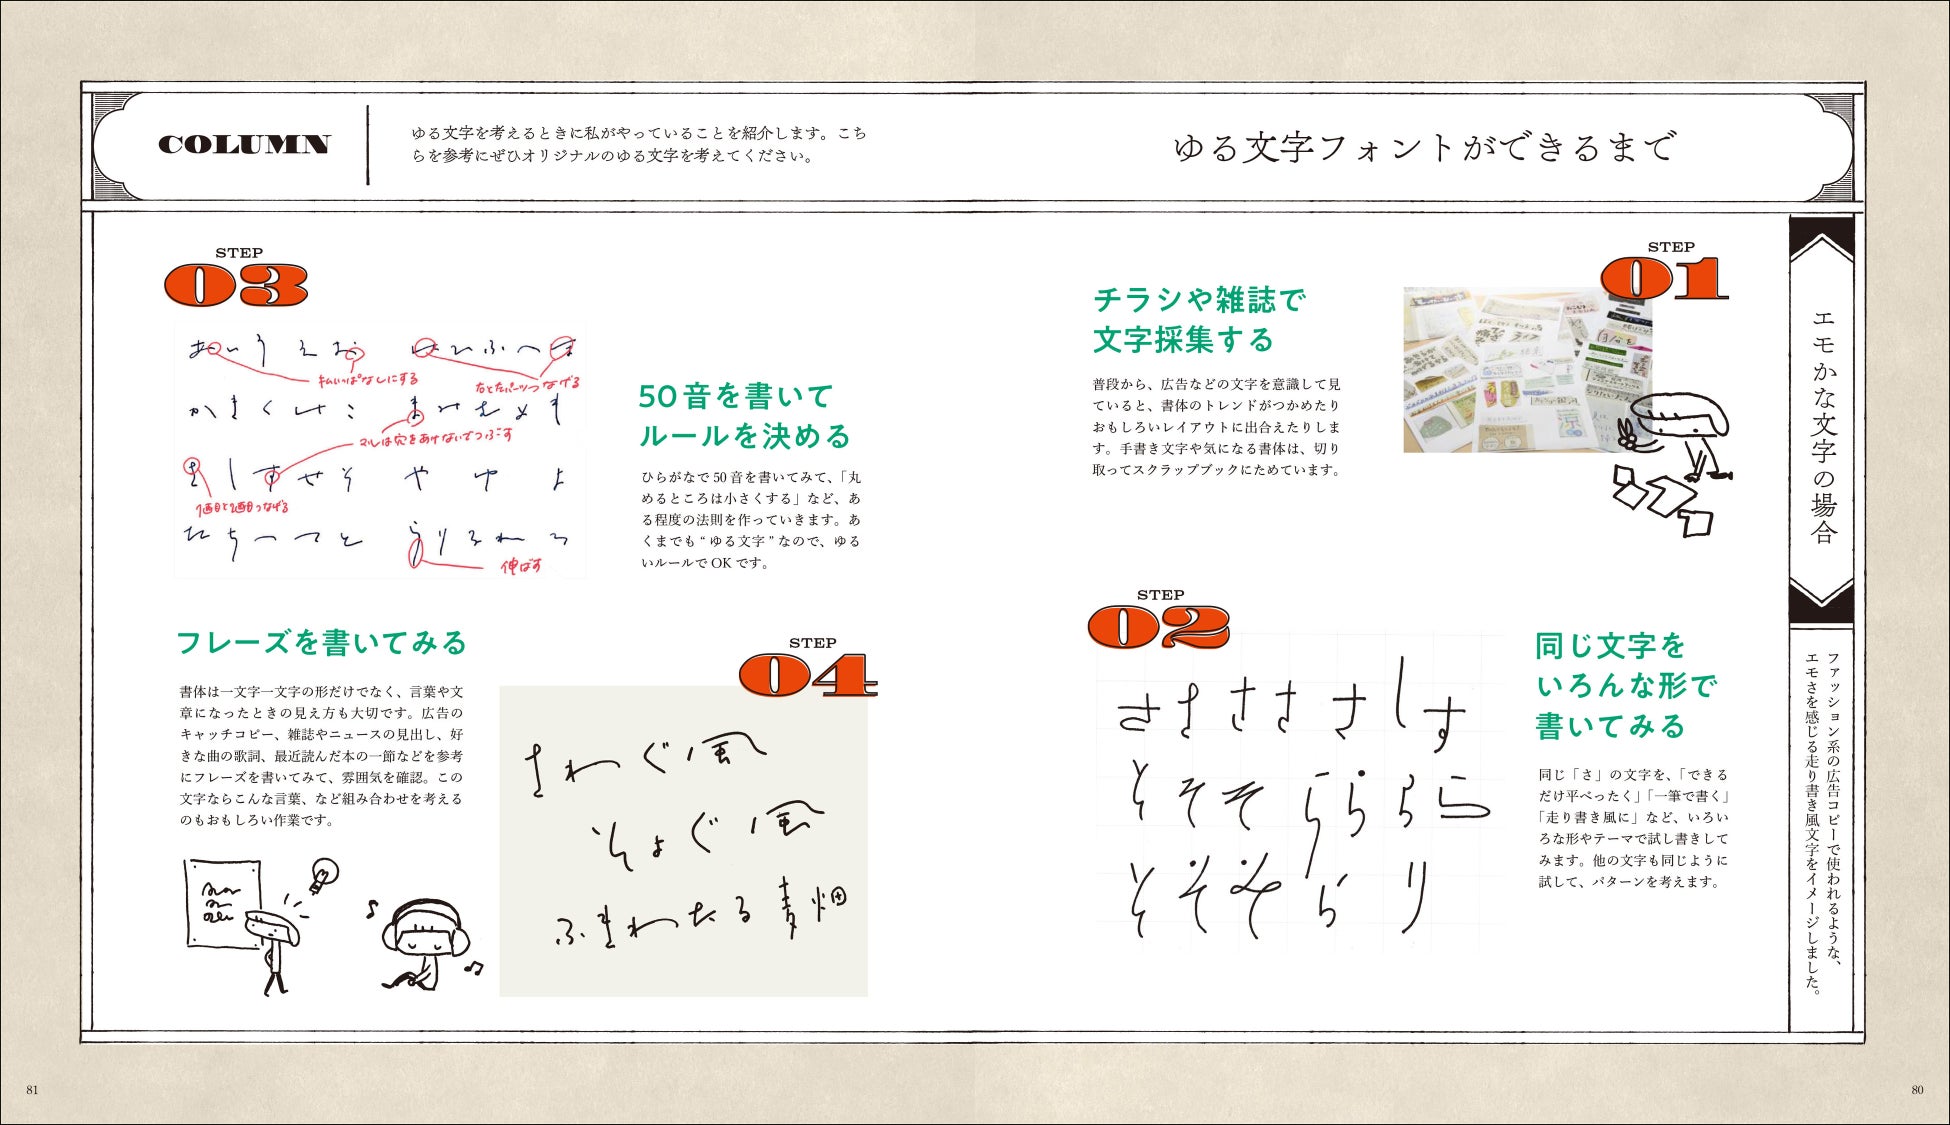 ゆる文字フォントができるまで
COLUMN
ゆる文字を考えるときに私がやっていることを紹介します。こち
らを参考にぜひオリジナルのゆる文字を考えてください。
エモかな文字の場合
ファッション系の広告コピーで使われるような、
エモさを感じる走り書き風文字をイメージしました。
STEP
01
チラシや雑誌で
文字採集する
普段から、広告などの文字を意識して見
ていると、書体のトレンドがつかめたり
おもしろいレイアウトに出合えたりしま
す。手書き文字や気になる書体は、切り
取ってスクラップブックにためています。
STEP
02
同じ文字を
いろんな形で
書いてみる
同じ「さ」の文字を、「できる
だけ平べったく」「一筆で書く」
「走り書き風に」など、いろい
ろな形やテーマで試し書きして
みます。他の文字も同じように
試して、パターンを考えます。
さささささしす
そそそららららら
そそそらり
STEP
03
50音を書いて
ルールを決める
ひらがなで50音を書いてみて、「丸
めるところは小さくする」など、あ
る程度の法則を作っていきます。あ
くまでも“ゆる文字”なので、ゆる
いルールでOKです。
あいうえお はひふへほ
右と左パーツつなげる
かきくけこ まみむめも
マルは穴をあけないでつぶす
さしすせそ やゆよ
1画目と2画目つなげる
たちつてと らりるれろ
伸ばす
STEP
04
フレーズを書いてみる
書体は一文字一文字の形だけでなく、言葉や文
章になったときの見え方も大切です。広告の
キャッチコピー、雑誌やニュースの見出し、好
きな曲の歌詞、最近読んだ本の一節などを参考
にフレーズを書いてみて、雰囲気を確認。この
文字ならこんな言葉、など組み合わせを考える
のもおもしろい作業です。
さわぐ風
そよぐ風
ふきわたる青畑
80
81